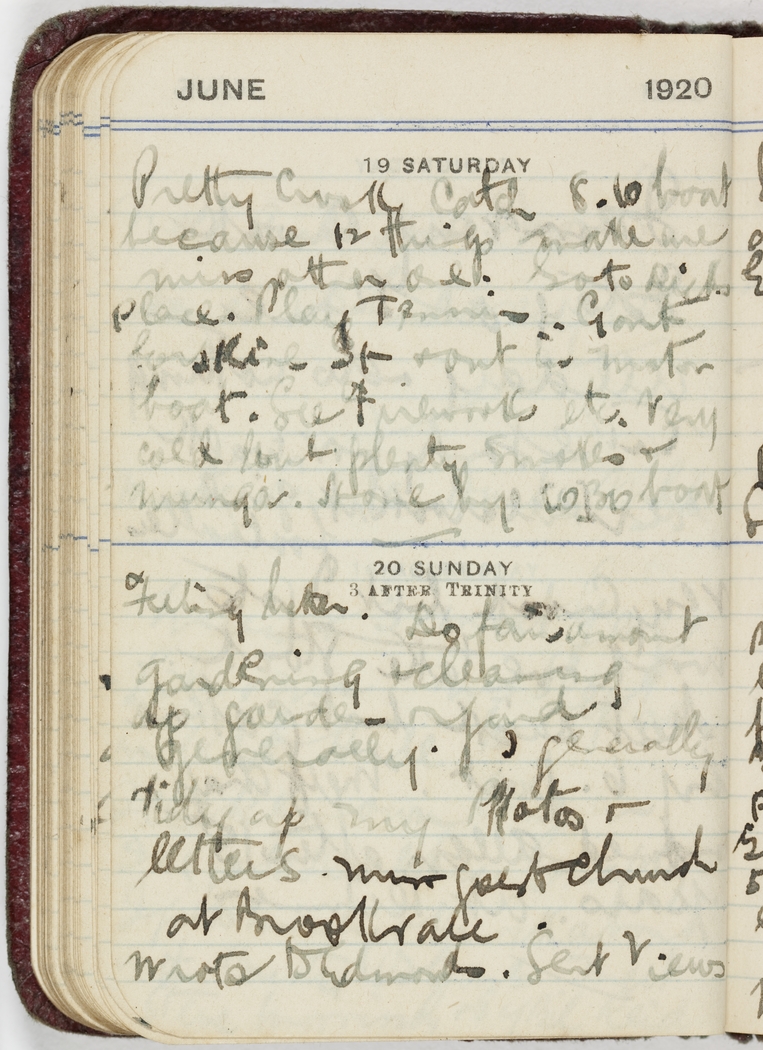 JUNE 1920
19 SATURDAY
Pretty Crook Catch 8.10 boat
because 12 things make me
miss other one. Go to
place. Play Tennis. Go out
out in motor
boat. See Fireworks etc. Very
cold but plenty Smokes &
munga. Home by 10.30 boat
20 SUNDAY
3 AFTER TRINITY
Feeling better. Do fair amount
gardening & cleaning
up garden & yard
generally. generally
Tidy up my Photos &
letters. Mum goes to Church
at Brookvale.
Wrote D Edmonds. Sent Views